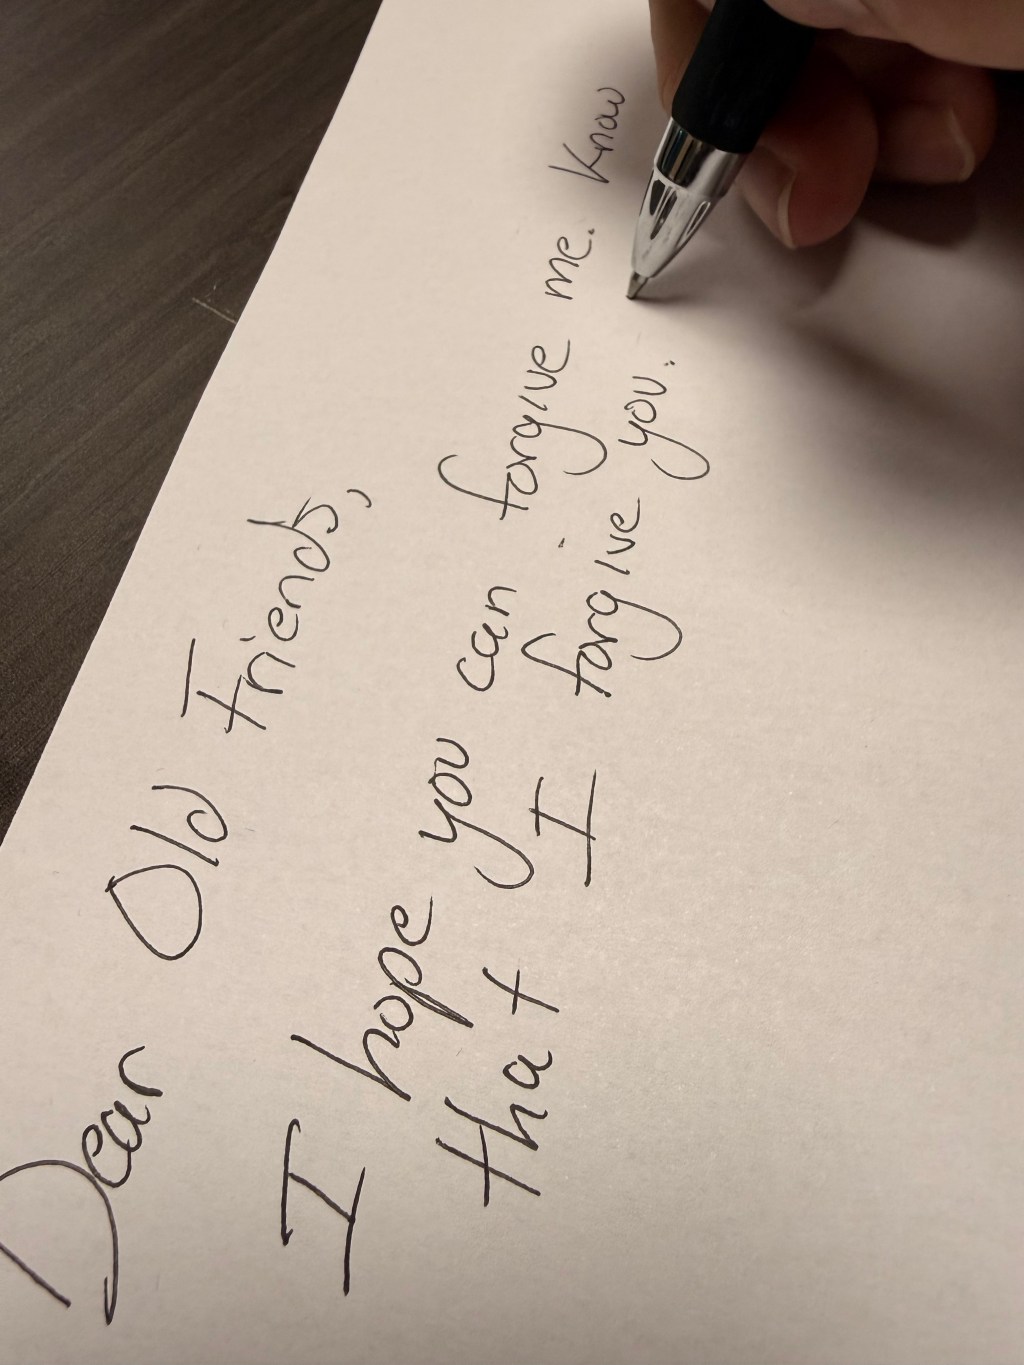 Dear Old Friends,
I hope you can forgive me. Know
that I forgive you.